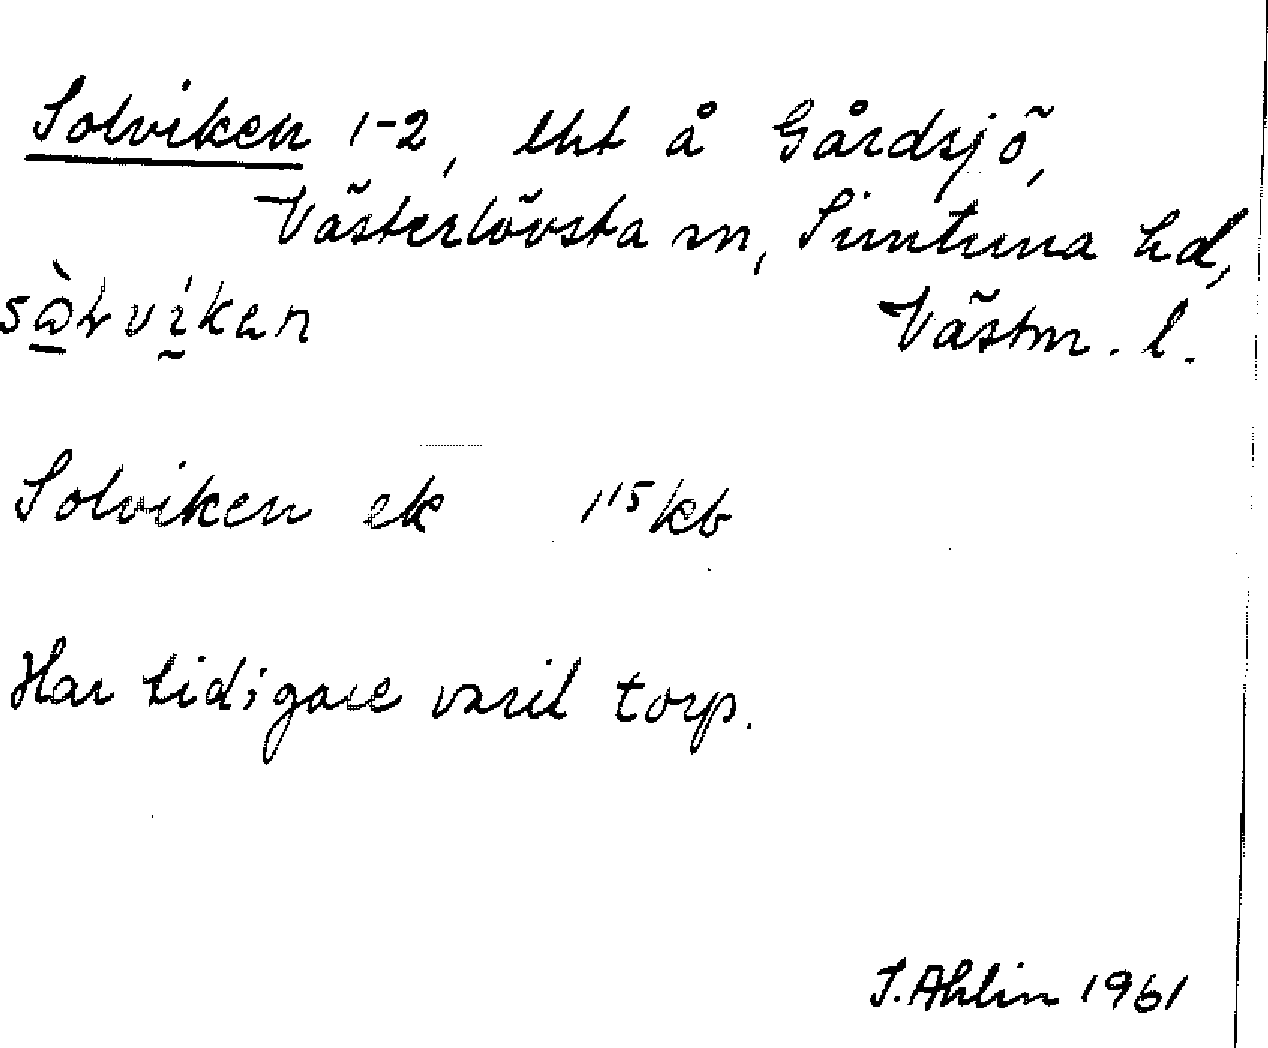 Solviken 1-2, lht å Gårdsjö,
Västerlövsta sn, Simtuna hd,
Västm. l.
Solviken ek 115/kb
Har tidigare varit torp.
I. Ahlin 1961